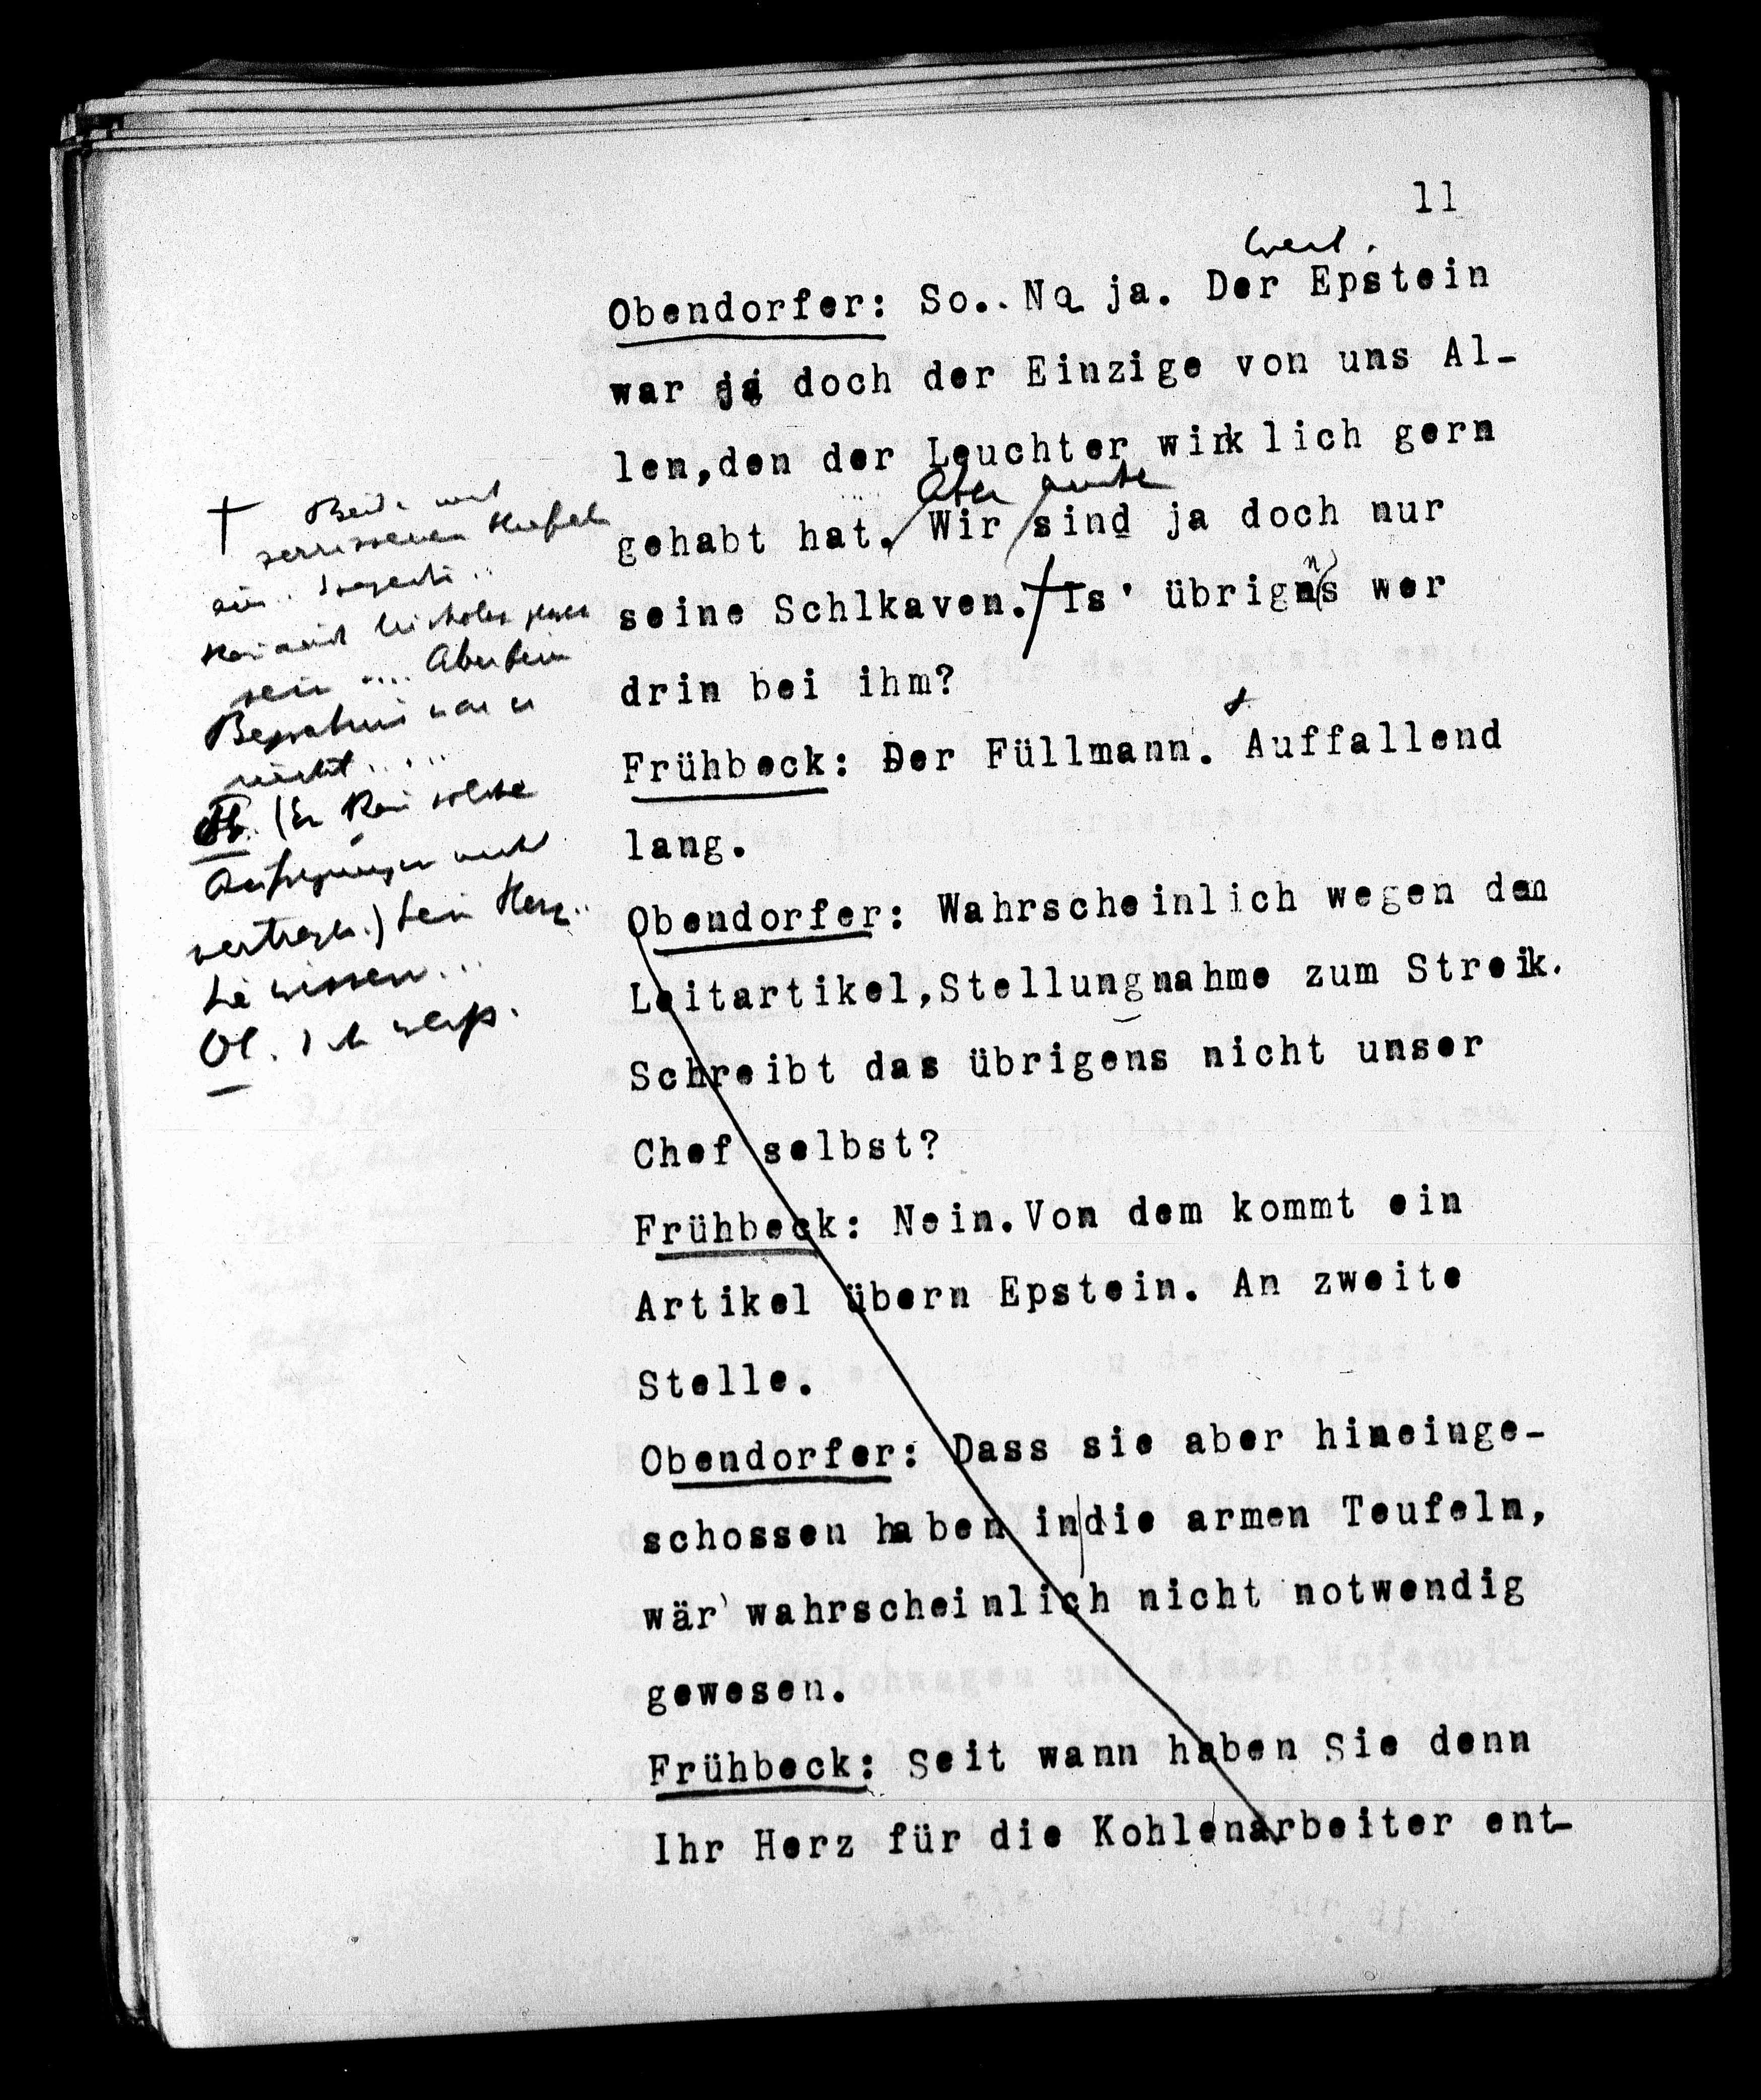 11
Obendorfer: So.. Na ja. Der Epstein
war ja doch der Einzige von uns Al-
len,den der Leuchter wirklich gern
Aber
gehabt hat. Wir sind ja doch nur
seine Schlkaven. Is' übrigens wer
drin bei ihm?
Frühbeck: Der Füllmann. Auffallend
lang.
Obendorfer: Wahrscheinlich wegen dem
Leitartikel,Stellungnahme zum Streik.
Schreibt das übrigens nicht unser
Chef selbst?
Frühbeck: Nein.Von dem kommt ein
Artikel übern Epstein. An zweite
Stelle.
Obendorfer: Dass sie aber hineinge-
schossen haben in die armen Teufeln,
wär' wahrscheinlich nicht notwendig
gewesen.
Frühbeck: Seit wann haben Sie denn
Ihr Herz für die Kohlenarbeiter ent-
sein .... Aber beim
Begräbnis war er
nicht.....
(Er kann solche
Aufregungen nicht
vertragen.) Sein Herz..
Sie wissen...
Ob. Ich weiß.